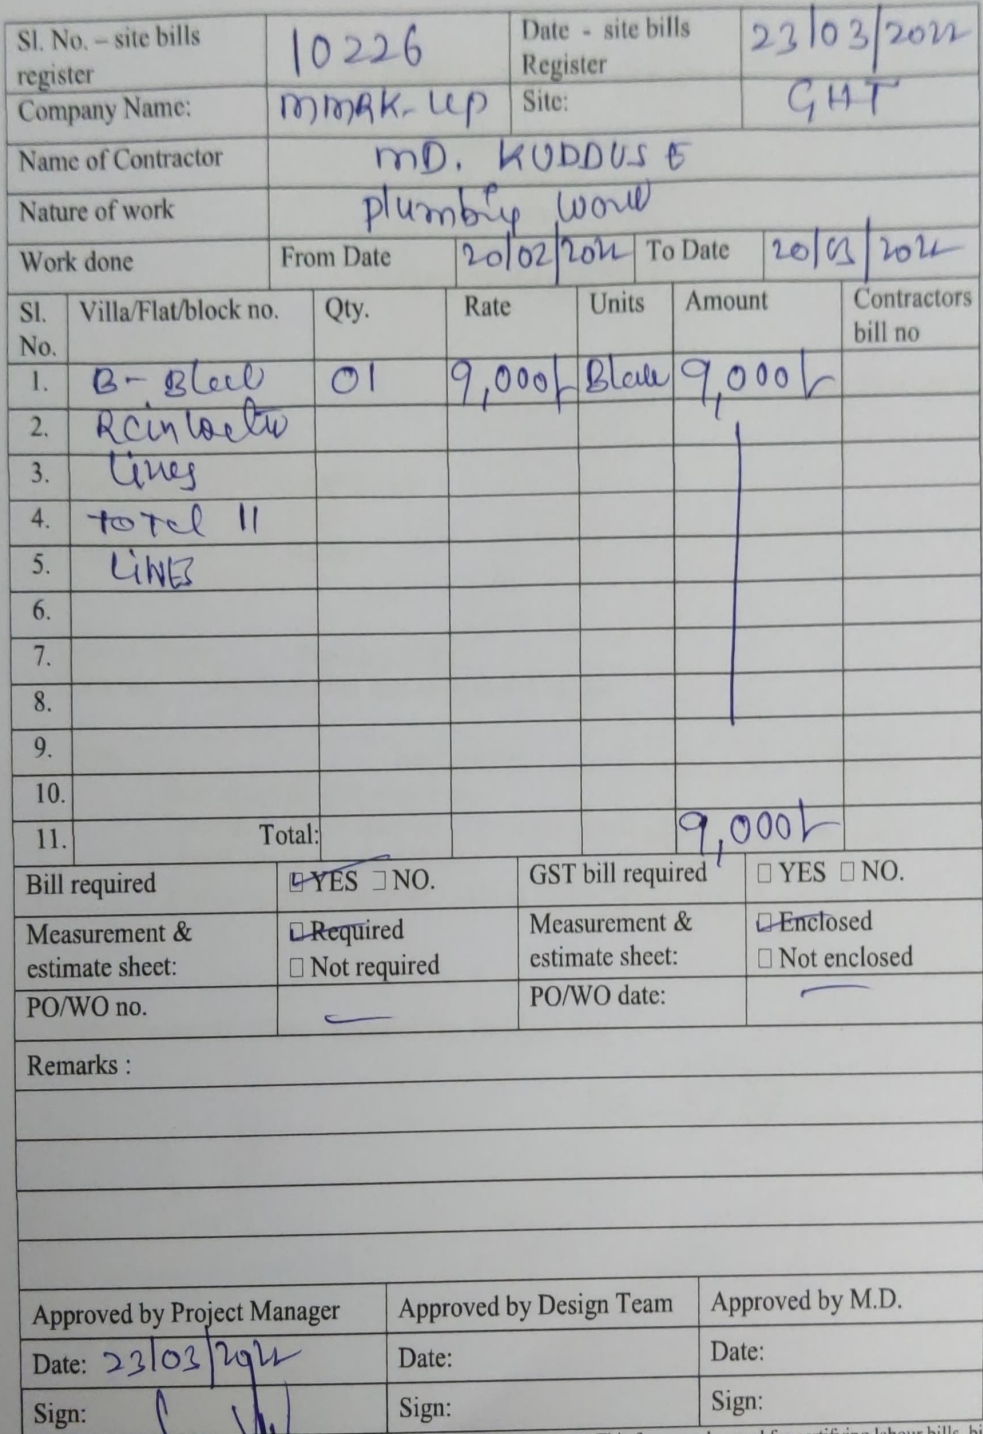 Sl. No. – site bills register 10226 Date - site bills Register 23/03/2022
Company Name: MMRK-UP Site: GHT
Name of Contractor MD. KUDDUSE
Nature of work Plumbing work
Work done From Date 20/02/2022 To Date 20/03/2022
Sl. No. Villa/Flat/block no. Qty. Rate Units Amount Contractors bill no
1. B- Block 01 9,000/- Block 9,000/-
2.
3. Lines
4. total 11
5. LINES
6.
7.
8.
9.
10.
11. Total: 9,000/-
Bill required YES NO. GST bill required YES NO.
Measurement & estimate sheet: Required Not required Measurement & estimate sheet: Enclosed Not enclosed
PO/WO no. PO/WO date:
Remarks :
Approved by Project Manager Approved by Design Team Approved by M.D.
Date: 23/03/2022 Date: Date:
Sign: Sign: Sign: